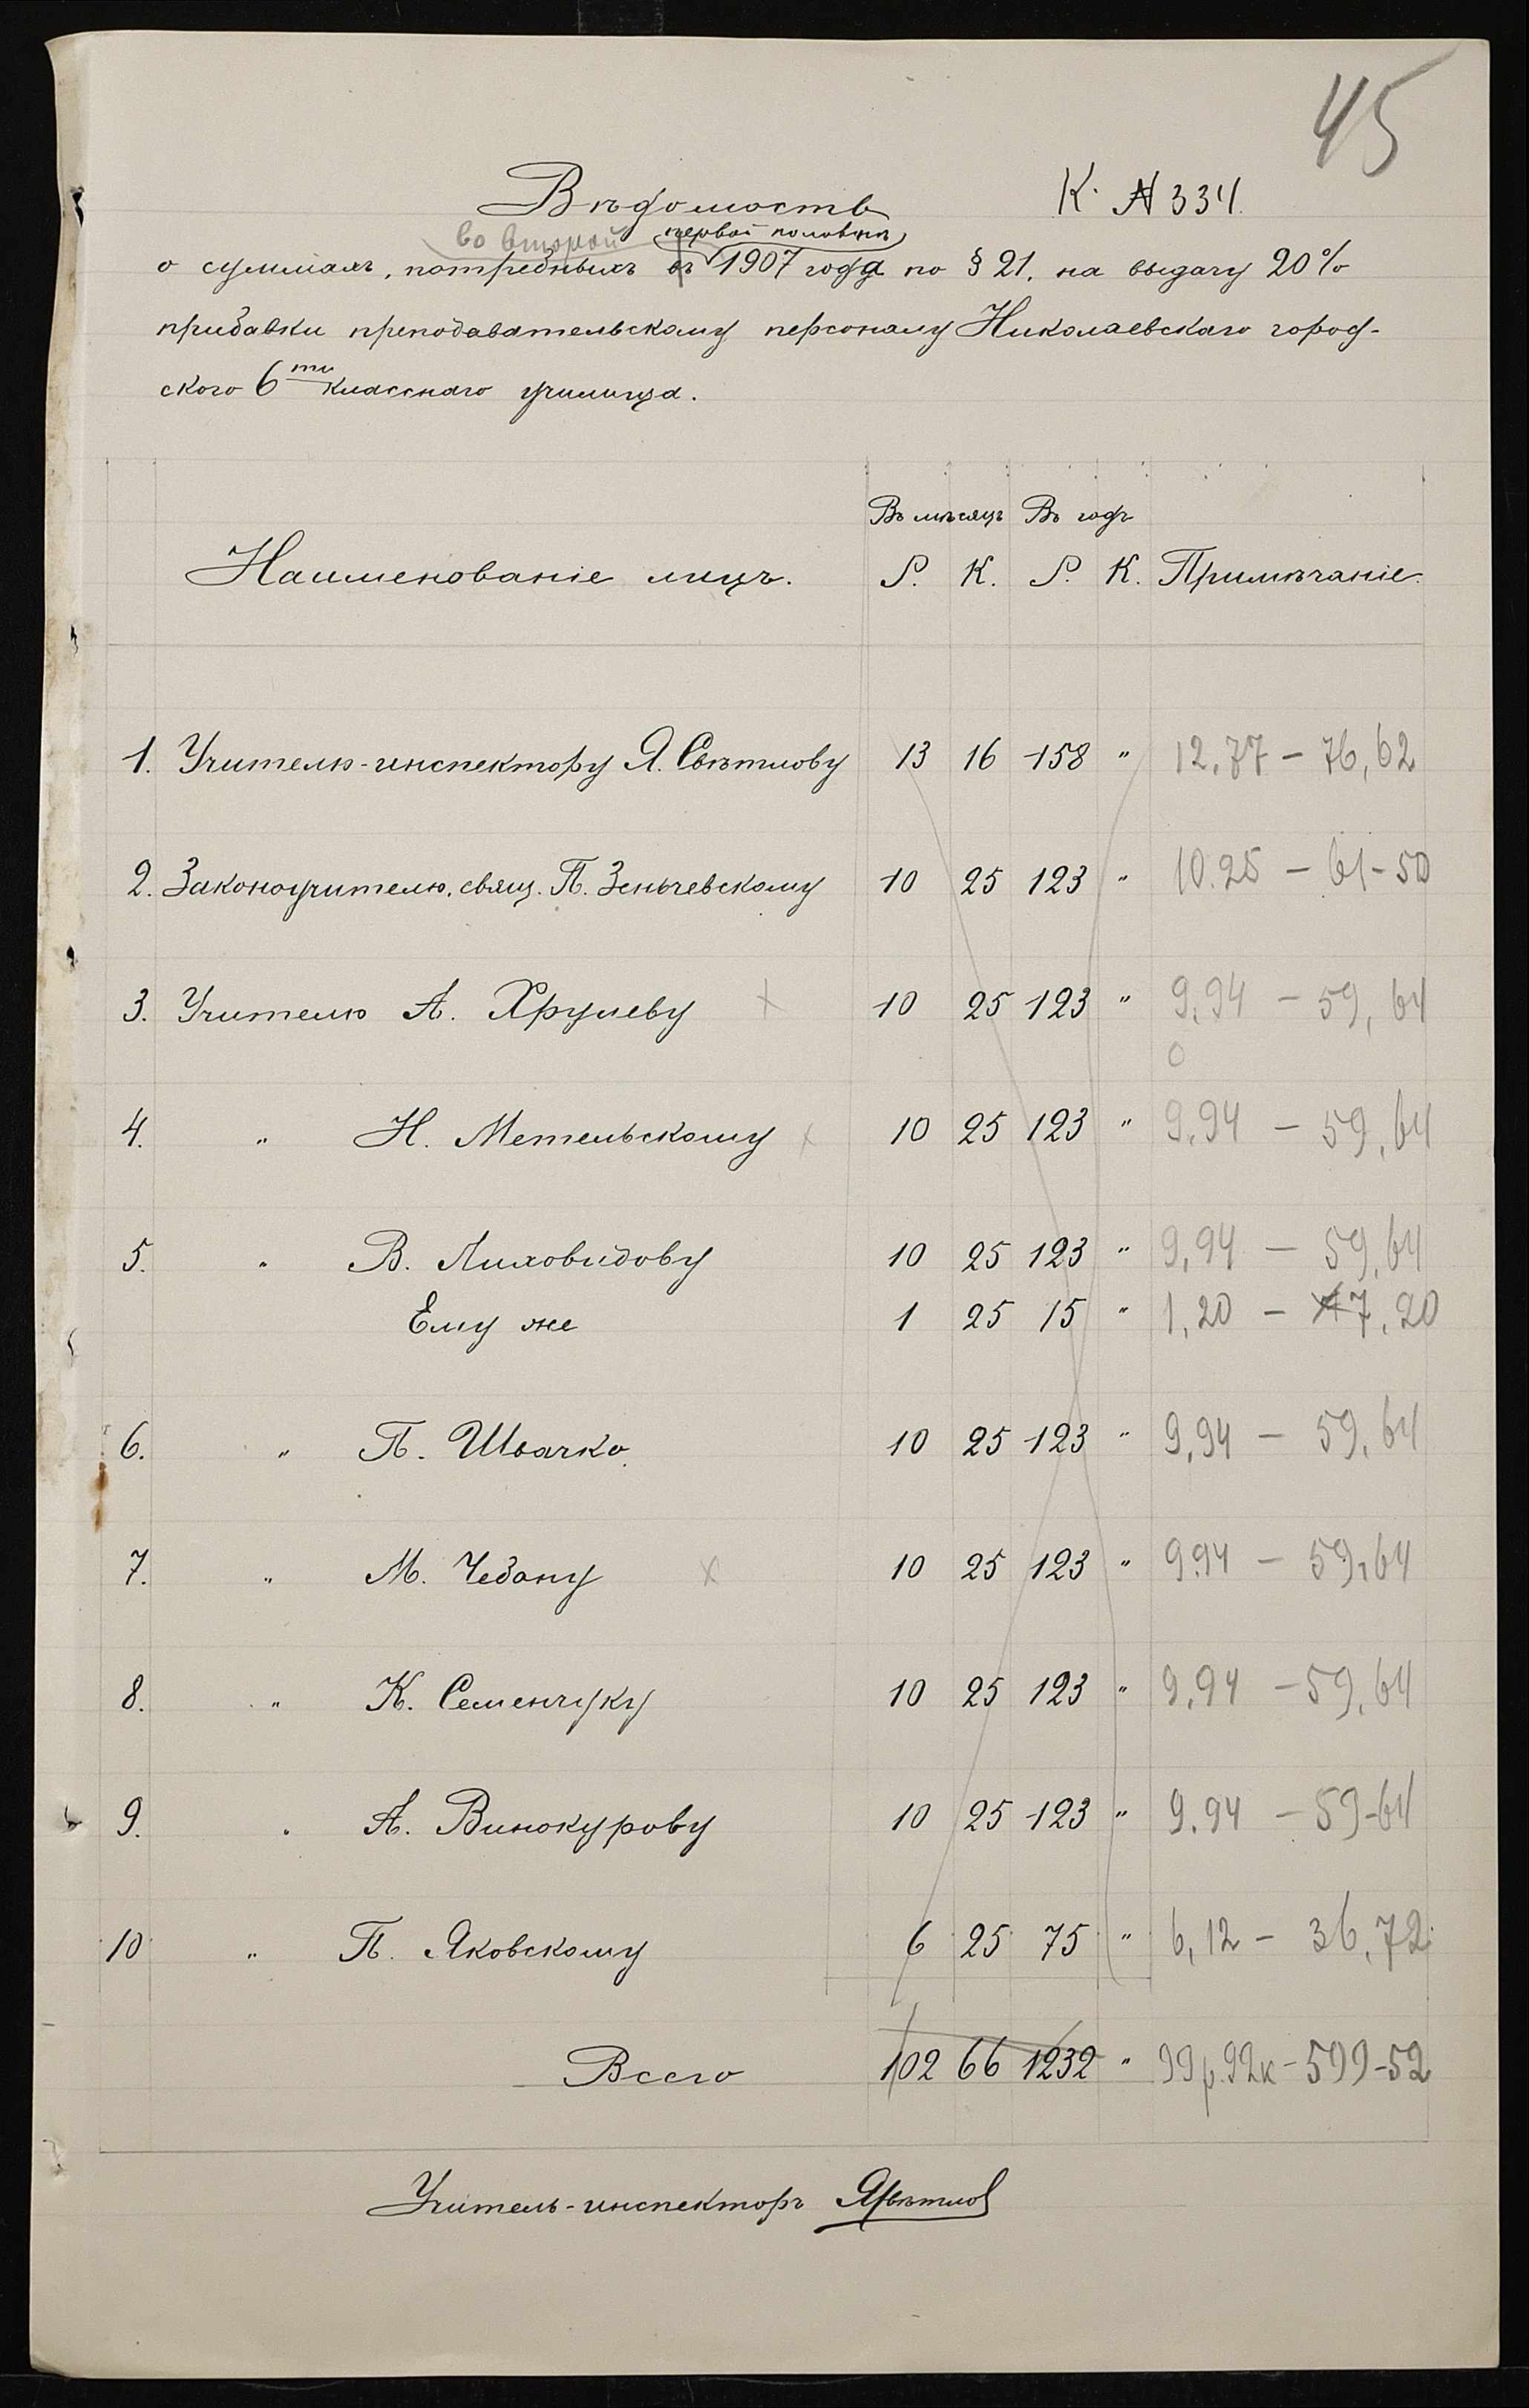 45
Вѣдомость К. № 334.
во второй первой половинѣ
о суммахъ, потребныхъ въ 1907 года по § 21. на выдачу 20%
прибавки преподавательскому персоналу Николаевскаго город-
ского 6ти класснаго училища.
Въ мѣсяцъ Въ годъ
Наименованіе лицъ. Р. К. Р. К. Примѣчаніе.
1. Учителю-инспектору Я. Свѣтлову 13 16 158 " 12,77 - 76,62
2. Законоучителю, свящ. П. Зеньчевскому 10 25 123 " 10.25 - 61-50
3. Учителю А. Хрулеву х 10 25 123 " 9,94 - 59,64
0
4. " Н. Метельскому х 10 25 123 " 9,94 - 59,64
5. " В. Лиховидову 10 25 123 " 9,94 - 59,64
Ему же 1 25 15 " 1,20 - 7,20
6. " П. Швачко. 10 25 123 " 9,94 - 59,64
7. " М. Чебану х 10 25 123 " 9.94 - 59,64
8. " К. Семенчуку 10 25 123 " 9,94 - 59,64
9. " А. Винокурову 10 25 123 " 9.94 - 59-64
10 " П. Яковскому 6 25 75 " 6,12 - 36,72
Всего 102 66 1232 " 99р.92к - 599-52
Учитель-инспекторъ ЯСвѣтлов